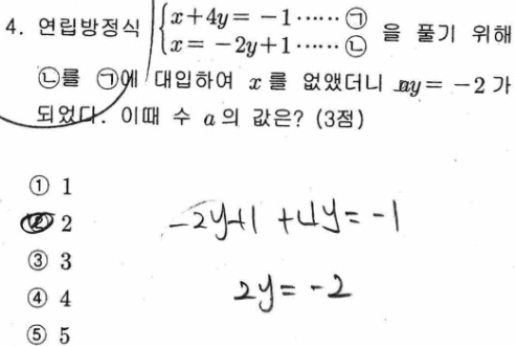 4. 연립방정식 { x+4y = -1 ······ ㉠
x = -2y+1 ······ ㉡ 을 풀기 위해
㉡를 ㉠에 대입하여 x를 없앴더니 ay = -2가
되었다. 이때 수 a의 값은? (3점)
① 1
② 2
③ 3
④ 4
⑤ 5
-2y+1 +4y = -1
2y = -2